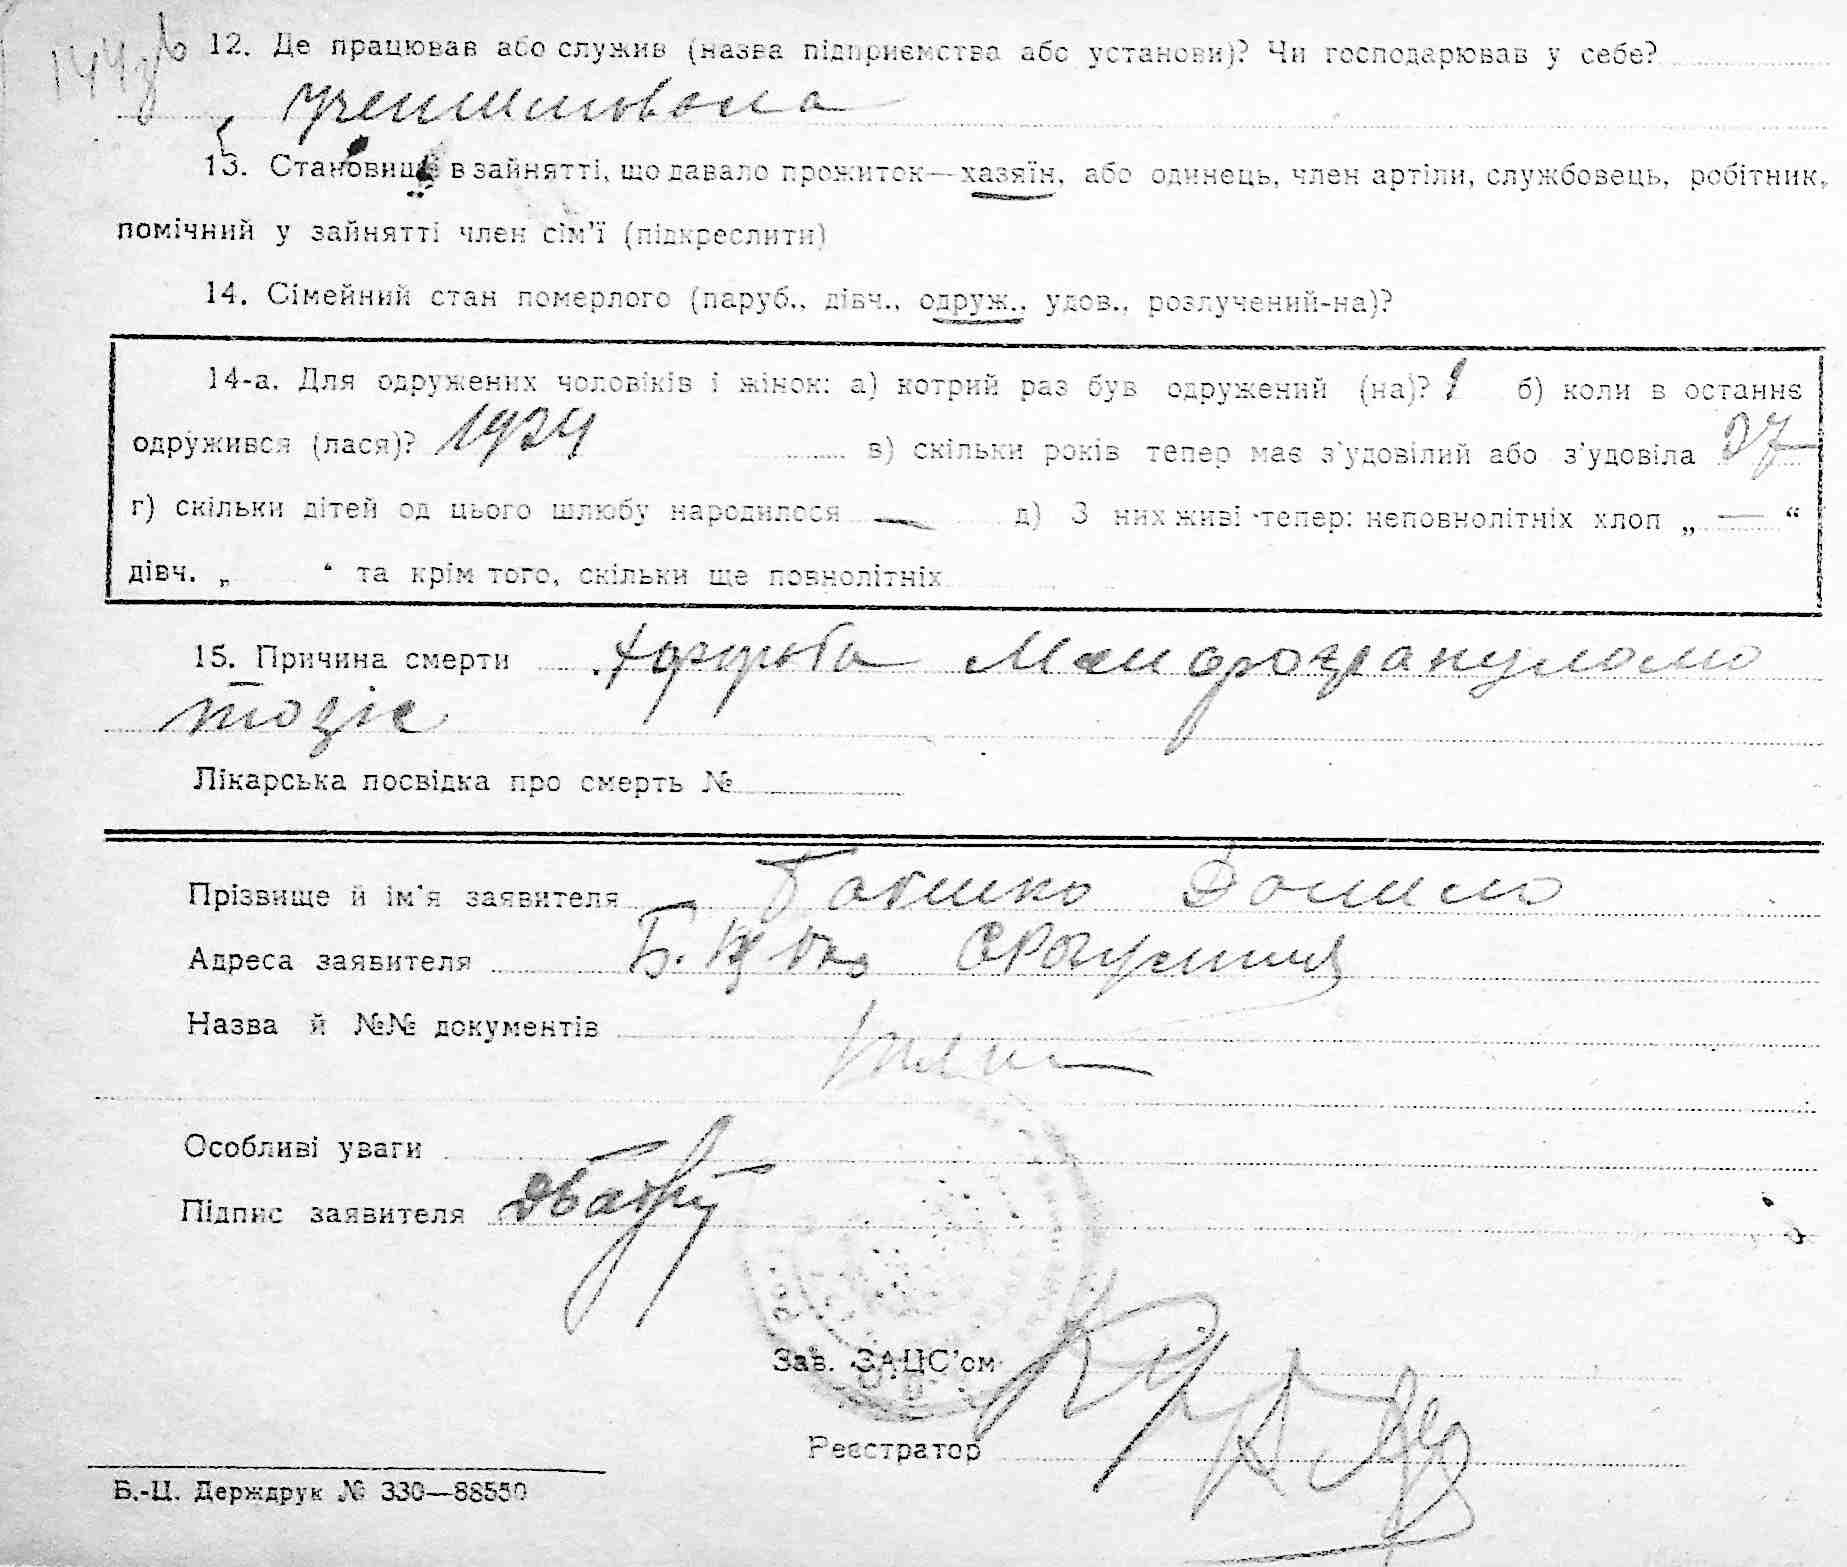 144зв
12. Де працював або служив (назва підприємства або установи)? Чи господарював у себе?
13. Становище в зайнятті, що давало прожиток—хазяїн, або одинець, член артіли, службовець, робітник,
помічний у зайнятті член сім'ї (підкреслити)
14. Сімейний стан померлого (паруб., дівч., одруж., удов., розлучений-на)?
14-а. Для одружених чоловіків і жінок: а) котрий раз був одружений (на)? 1 б) коли в останнє
одружився (лася)? 1924 в) скільки років тепер має з'удовілий або з'удовіла 27
г) скільки дітей од цього шлюбу народилося — д) З них живі тепер: неповнолітніх хлоп „ — “
дівч. „ “ та крім того, скільки ще повнолітніх
15. Причина смерти
Лікарська посвідка про смерть №
Прізвище й ім'я заявителя Данило
Адреса заявителя Б.
Назва й №№ документів
Особливі уваги
Підпис заявителя
Зав. ЗАЦС'ом
Реєстратор
Б.-Ц. Держдрук № 330—88550